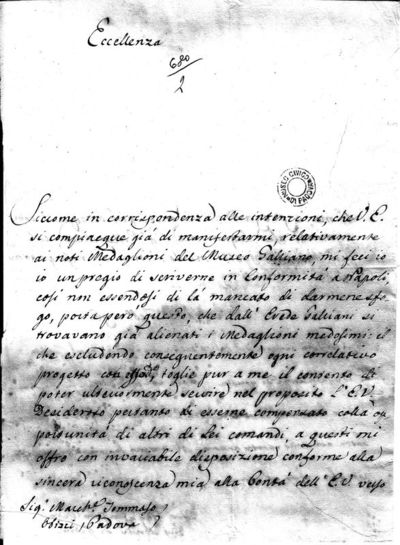 Eccellenza
680
2
MUSEO CIVICO
Siccome in corrispondenza alle intenzioni, che V. E.
si compiacque già di manifestarmi, relativamente
ai noti Medaglioni del Museo Galviano, mi feci io
io un pregio di scriverne in Conformità a Napoli,
così non essendosi di là mancato di darmene sfo-
go, porta però questo, che dall' Erede Galviani si
trovavano già alienati i Medaglioni medesimi: il
che escludendo conseguentemente ogni correlativo
progetto con toglie pur a me il contento di
poter ulteriormente servire nel proposito l'E.V.
Desideroso pertanto di esserne compensato colla op
portunità di altri di Lei comandi, a questi mi
offro con invariabile disposizione conforme alla
sincera riconoscenza mia alla bontà dell' E.V. verso
Sig. March. Tommaso
Obizzi / Padova /